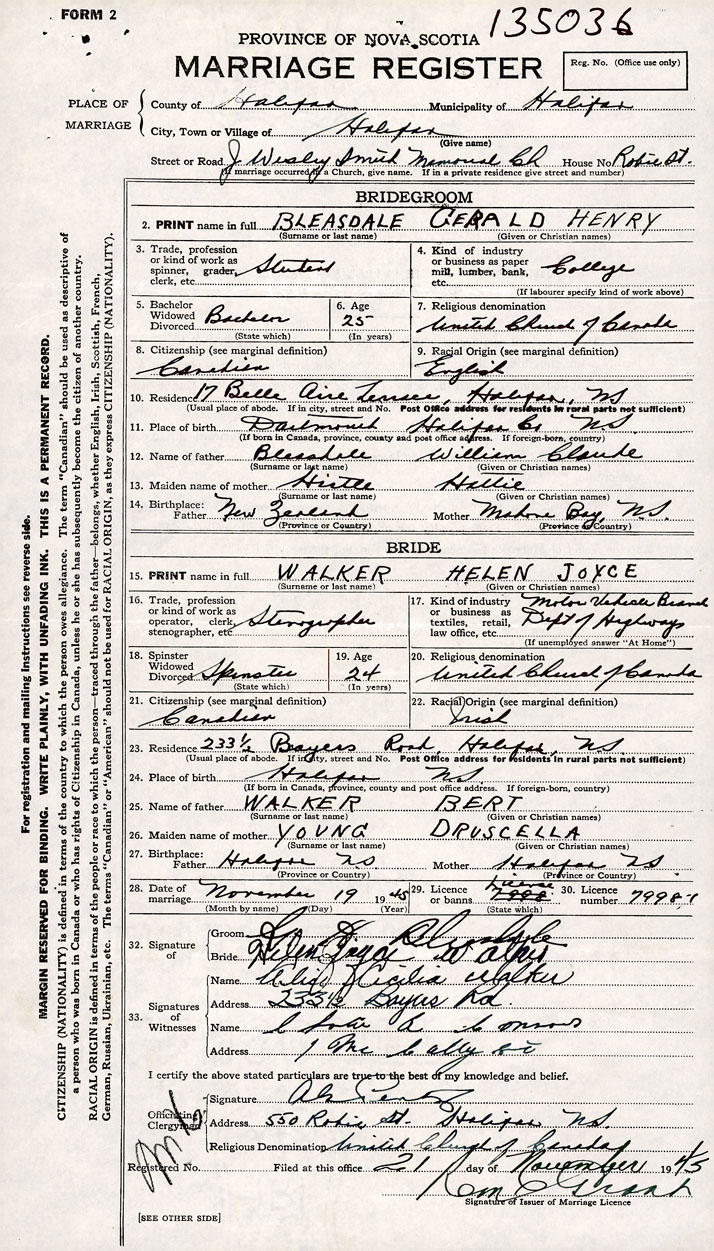 FORM 2
135036
PROVINCE OF NOVA SCOTIA
MARRIAGE REGISTER
Reg. No. (Office use only)
PLACE OF MARRIAGE
County of Halifax Municipality of Halifax
City, Town or Village of Halifax
(Give name)
Street or Road J. Wesley Smith Memorial Ch House No. Robie St.
(If marriage occurred in a Church, give name. If in a private residence give street and number)
BRIDEGROOM
2. PRINT name in full BLEASDALE GERALD HENRY
(Surname or last name) (Given or Christian names)
3. Trade, profession or kind of work as spinner, grader, clerk, etc. Student
4. Kind of industry or business as paper mill, lumber, bank, etc. College
(If labourer specify kind of work above)
5. Bachelor Widowed Divorced Bachelor
(State which)
6. Age 25
(In years)
7. Religious denomination
United Church of Canada
8. Citizenship (see marginal definition)
Canadian
9. Racial Origin (see marginal definition)
English
10. Residence 17 Belle Aire Terrace, Halifax, NS
(Usual place of abode. If in city, street and No. Post Office address for residents in rural parts not sufficient)
11. Place of birth Dartmouth Halifax Co NS
(If born in Canada, province, county and post office address. If foreign-born, country)
12. Name of father Bleasdale William Claude
(Surname or last name) (Given or Christian names)
13. Maiden name of mother Hallie
(Surname or last name) (Given or Christian names)
14. Birthplace: Father New Zealand Mother Mahone Bay, N.S.
(Province or Country) (Province or Country)
BRIDE
15. PRINT name in full WALKER HELEN JOYCE
(Surname or last name) (Given or Christian names)
16. Trade, profession or kind of work as operator, clerk, stenographer, etc. Stenographer
17. Kind of industry or business as textiles, retail, law office, etc. Motor Vehicle Branch Dept of Highways
(If unemployed answer "At Home")
18. Spinster Widowed Divorced Spinster
(State which)
19. Age 24
(In years)
20. Religious denomination
United Church of Canada
21. Citizenship (see marginal definition)
Canadian
22. Racial Origin (see marginal definition)
Irish
23. Residence 233½ Bayers Road, Halifax, NS
(Usual place of abode. If in city, street and No. Post Office address for residents in rural parts not sufficient)
24. Place of birth Halifax NS
(If born in Canada, province, county and post office address. If foreign-born, country)
25. Name of father WALKER BERT
(Surname or last name) (Given or Christian names)
26. Maiden name of mother YOUNG DRUSCELLA
(Surname or last name) (Given or Christian names)
27. Birthplace: Father Halifax NS Mother Halifax NS
(Province or Country) (Province or Country)
28. Date of marriage November 19 1945
(Month by name) (Day) (Year)
29. Licence or banns License 7998
(State which)
30. Licence number 7998-1
32. Signature of
Groom
Bride Helen Joyce Walker
33. Signatures of Witnesses
Name Cecilia Walker
Address 233½ Bayers Rd.
Name
Address
I certify the above stated particulars are true to the best of my knowledge and belief.
Officiating Clergyman
Signature
Address 550 Robie St. Halifax NS.
Religious Denomination United Church of Canada
Registered No. Filed at this office 21 day of November 1945
Signature of Issuer of Marriage Licence
[SEE OTHER SIDE]
For registration and mailing instructions see reverse side.
MARGIN RESERVED FOR BINDING. WRITE PLAINLY, WITH UNFADING INK. THIS IS A PERMANENT RECORD.
CITIZENSHIP (NATIONALITY) is defined in terms of the country to which the person owes allegiance. The term "Canadian" should be used as descriptive of
a person who was born in Canada or who has rights of Citizenship in Canada, unless he or she has subsequently become the citizen of another country.
RACIAL ORIGIN is defined in terms of the people or race to which the person—traced through the father—belongs, whether English, Irish, Scottish, French,
German, Russian, Ukrainian, etc. The terms "Canadian" or "American" should not be used for RACIAL ORIGIN, as they express CITIZENSHIP (NATIONALITY).